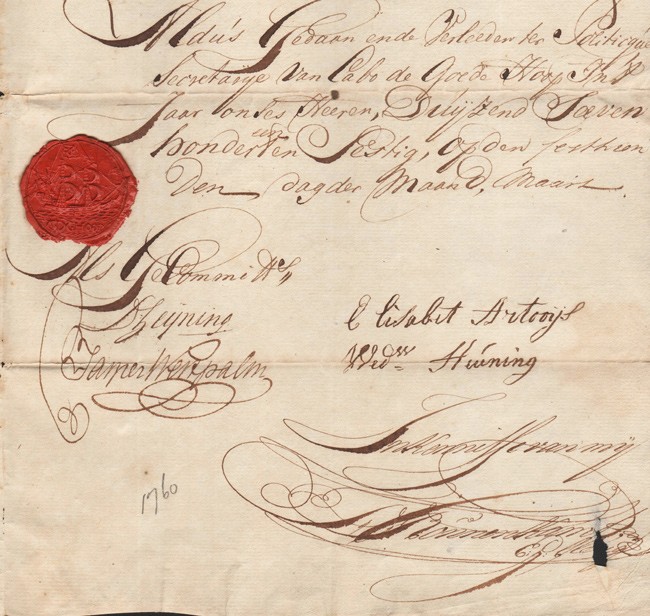 Aldus Gedaan ende Verleeden ter Politicque
Secretarije van Cabo de Goede Hoop In't
Jaar onses Heeren, Duijzend Seeven
honderd en Sestig, op den sesthien
den dag der Maand, Maart.
Als Gecommitt.s
Elisabet Artooijs
Wed.w Heüning
In kennisse van mij
1760